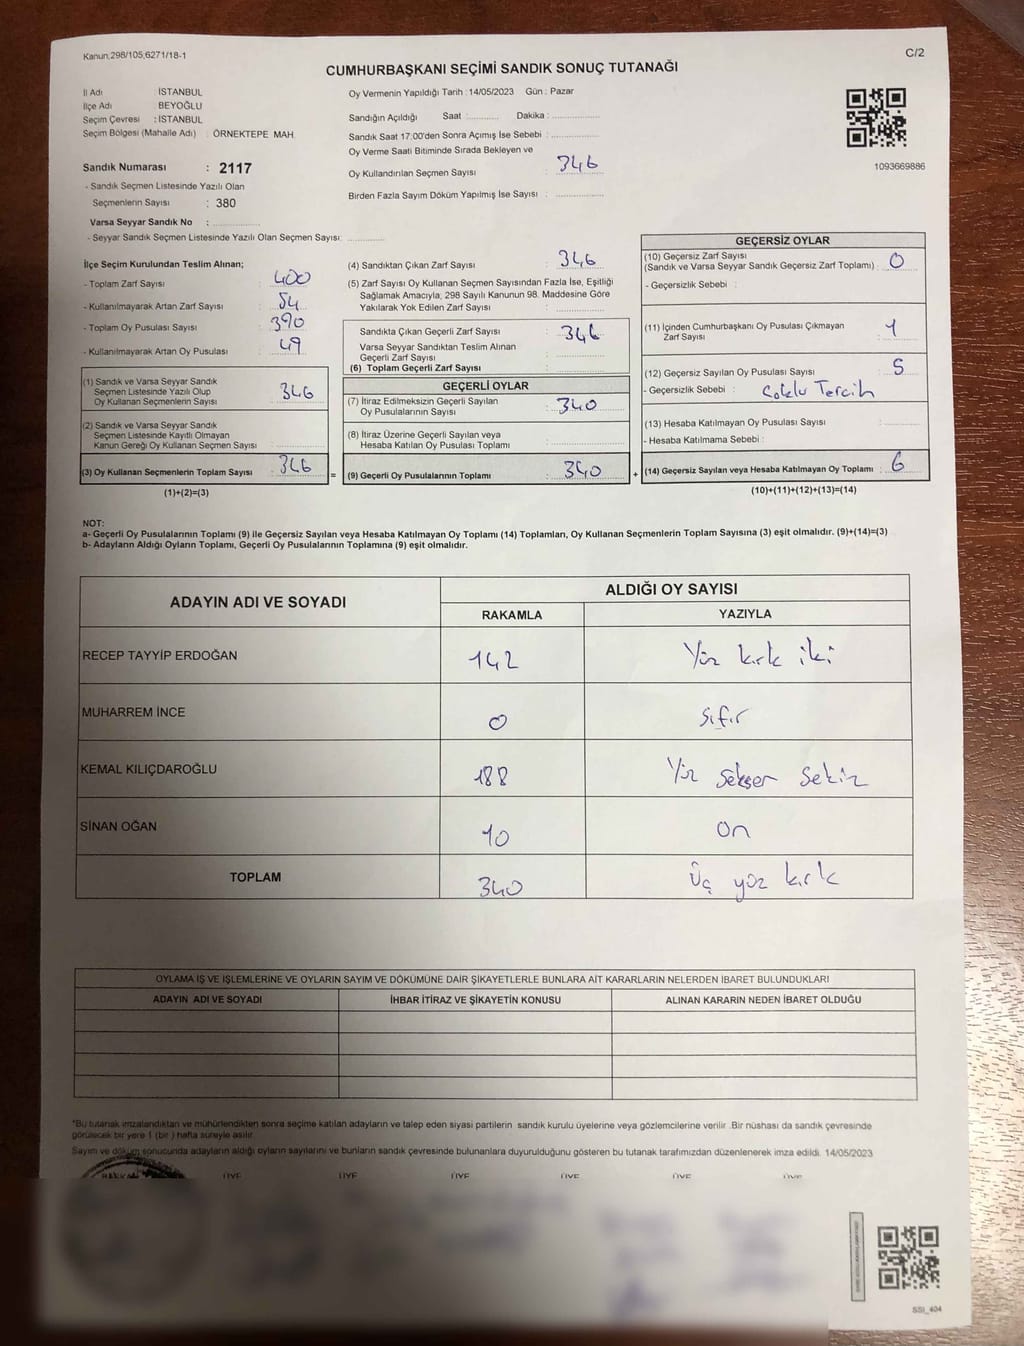 Kanun;298/105;6271/18-1
C/2
CUMHURBAŞKANI SEÇİMİ SANDIK SONUÇ TUTANAĞI
İl Adı : İSTANBUL
İlçe Adı : BEYOĞLU
Seçim Çevresi : İSTANBUL
Seçim Bölgesi (Mahalle Adı) : ÖRNEKTEPE MAH.
Sandık Numarası : 2117
- Sandık Seçmen Listesinde Yazılı Olan
Seçmenlerin Sayısı : 380
Varsa Seyyar Sandık No :
- Seyyar Sandık Seçmen Listesinde Yazılı Olan Seçmen Sayısı:
Oy Vermenin Yapıldığı Tarih : 14/05/2023 Gün : Pazar
Sandığın Açıldığı Saat : Dakika :
Sandık Saat 17:00'den Sonra Açımış İse Sebebi :
Oy Verme Saati Bitiminde Sırada Bekleyen ve
Oy Kullandırılan Seçmen Sayısı : 346
Birden Fazla Sayım Döküm Yapılmış İse Sayısı :
1093669886
İlçe Seçim Kurulundan Teslim Alınan;
- Toplam Zarf Sayısı : 400
- Kullanılmayarak Artan Zarf Sayısı : 54
- Toplam Oy Pusulası Sayısı : 390
- Kullanılmayarak Artan Oy Pusulası : 49
(1) Sandık ve Varsa Seyyar Sandık
Seçmen Listesinde Yazılı Olup
Oy Kullanan Seçmenlerin Sayısı : 346
(2) Sandık ve Varsa Seyyar Sandık
Seçmen Listesinde Kayıtlı Olmayan
Kanun Gereği Oy Kullanan Seçmen Sayısı :
(3) Oy Kullanan Seçmenlerin Toplam Sayısı : 346
(1)+(2)=(3)
(4) Sandıktan Çıkan Zarf Sayısı : 346
(5) Zarf Sayısı Oy Kullanan Seçmen Sayısından Fazla İse, Eşitliği
Sağlamak Amacıyla; 298 Sayılı Kanunun 98. Maddesine Göre
Yakılarak Yok Edilen Zarf Sayısı :
Sandıkta Çıkan Geçerli Zarf Sayısı : 346
Varsa Seyyar Sandıktan Teslim Alınan
Geçerli Zarf Sayısı :
(6) Toplam Geçerli Zarf Sayısı :
GEÇERLİ OYLAR
(7) İtiraz Edilmeksizin Geçerli Sayılan
Oy Pusulalarının Sayısı : 340
(8) İtiraz Üzerine Geçerli Sayılan veya
Hesaba Katılan Oy Pusulası Toplamı :
= (9) Geçerli Oy Pusulalarının Toplamı : 340 +
GEÇERSİZ OYLAR
(10) Geçersiz Zarf Sayısı
(Sandık ve Varsa Seyyar Sandık Geçersiz Zarf Toplamı) : 0
- Geçersizlik Sebebi :
(11) İçinden Cumhurbaşkanı Oy Pusulası Çıkmayan
Zarf Sayısı : 1
(12) Geçersiz Sayılan Oy Pusulası Sayısı : 5
- Geçersizlik Sebebi : Çoklu Tercih
(13) Hesaba Katılmayan Oy Pusulası Sayısı :
- Hesaba Katılmama Sebebi :
(14) Geçersiz Sayılan veya Hesaba Katılmayan Oy Toplamı : 6
(10)+(11)+(12)+(13)=(14)
NOT:
a- Geçerli Oy Pusulalarının Toplamı (9) ile Geçersiz Sayılan veya Hesaba Katılmayan Oy Toplamı (14) Toplamları, Oy Kullanan Seçmenlerin Toplam Sayısına (3) eşit olmalıdır. (9)+(14)=(3)
b- Adayların Aldığı Oyların Toplamı, Geçerli Oy Pusulalarının Toplamına (9) eşit olmalıdır.
ADAYIN ADI VE SOYADI ALDIĞI OY SAYISI
RAKAMLA YAZIYLA
RECEP TAYYİP ERDOĞAN 142 Yüz kırk iki
MUHARREM İNCE 0 sıfır
KEMAL KILIÇDAROĞLU 188 Yüz seksen sekiz
SİNAN OĞAN 10 on
TOPLAM 340 Üç yüz kırk
OYLAMA İŞ VE İŞLEMLERİNE VE OYLARIN SAYIM VE DÖKÜMÜNE DAİR ŞİKAYETLERLE BUNLARA AİT KARARLARIN NELERDEN İBARET BULUNDUKLARI
ADAYIN ADI VE SOYADI İHBAR İTİRAZ VE ŞİKAYETİN KONUSU ALINAN KARARIN NEDEN İBARET OLDUĞU
*Bu tutanak imzalandıktan ve mühürlendikten sonra seçime katılan adayların ve talep eden siyasi partilerin sandık kurulu üyelerine veya gözlemcilerine verilir. Bir nüshası da sandık çevresinde
görülecek bir yere 1 (bir ) hafta süreyle asılır.
Sayım ve döküm sonucunda adayların aldığı oyların sayılarını ve bunların sandık çevresinde bulunanlara duyurulduğunu gösteren bu tutanak tarafımızdan düzenlenerek imza edildi. 14/05/2023
ÜYE ÜYE ÜYE ÜYE ÜYE ÜYE
SSI_404